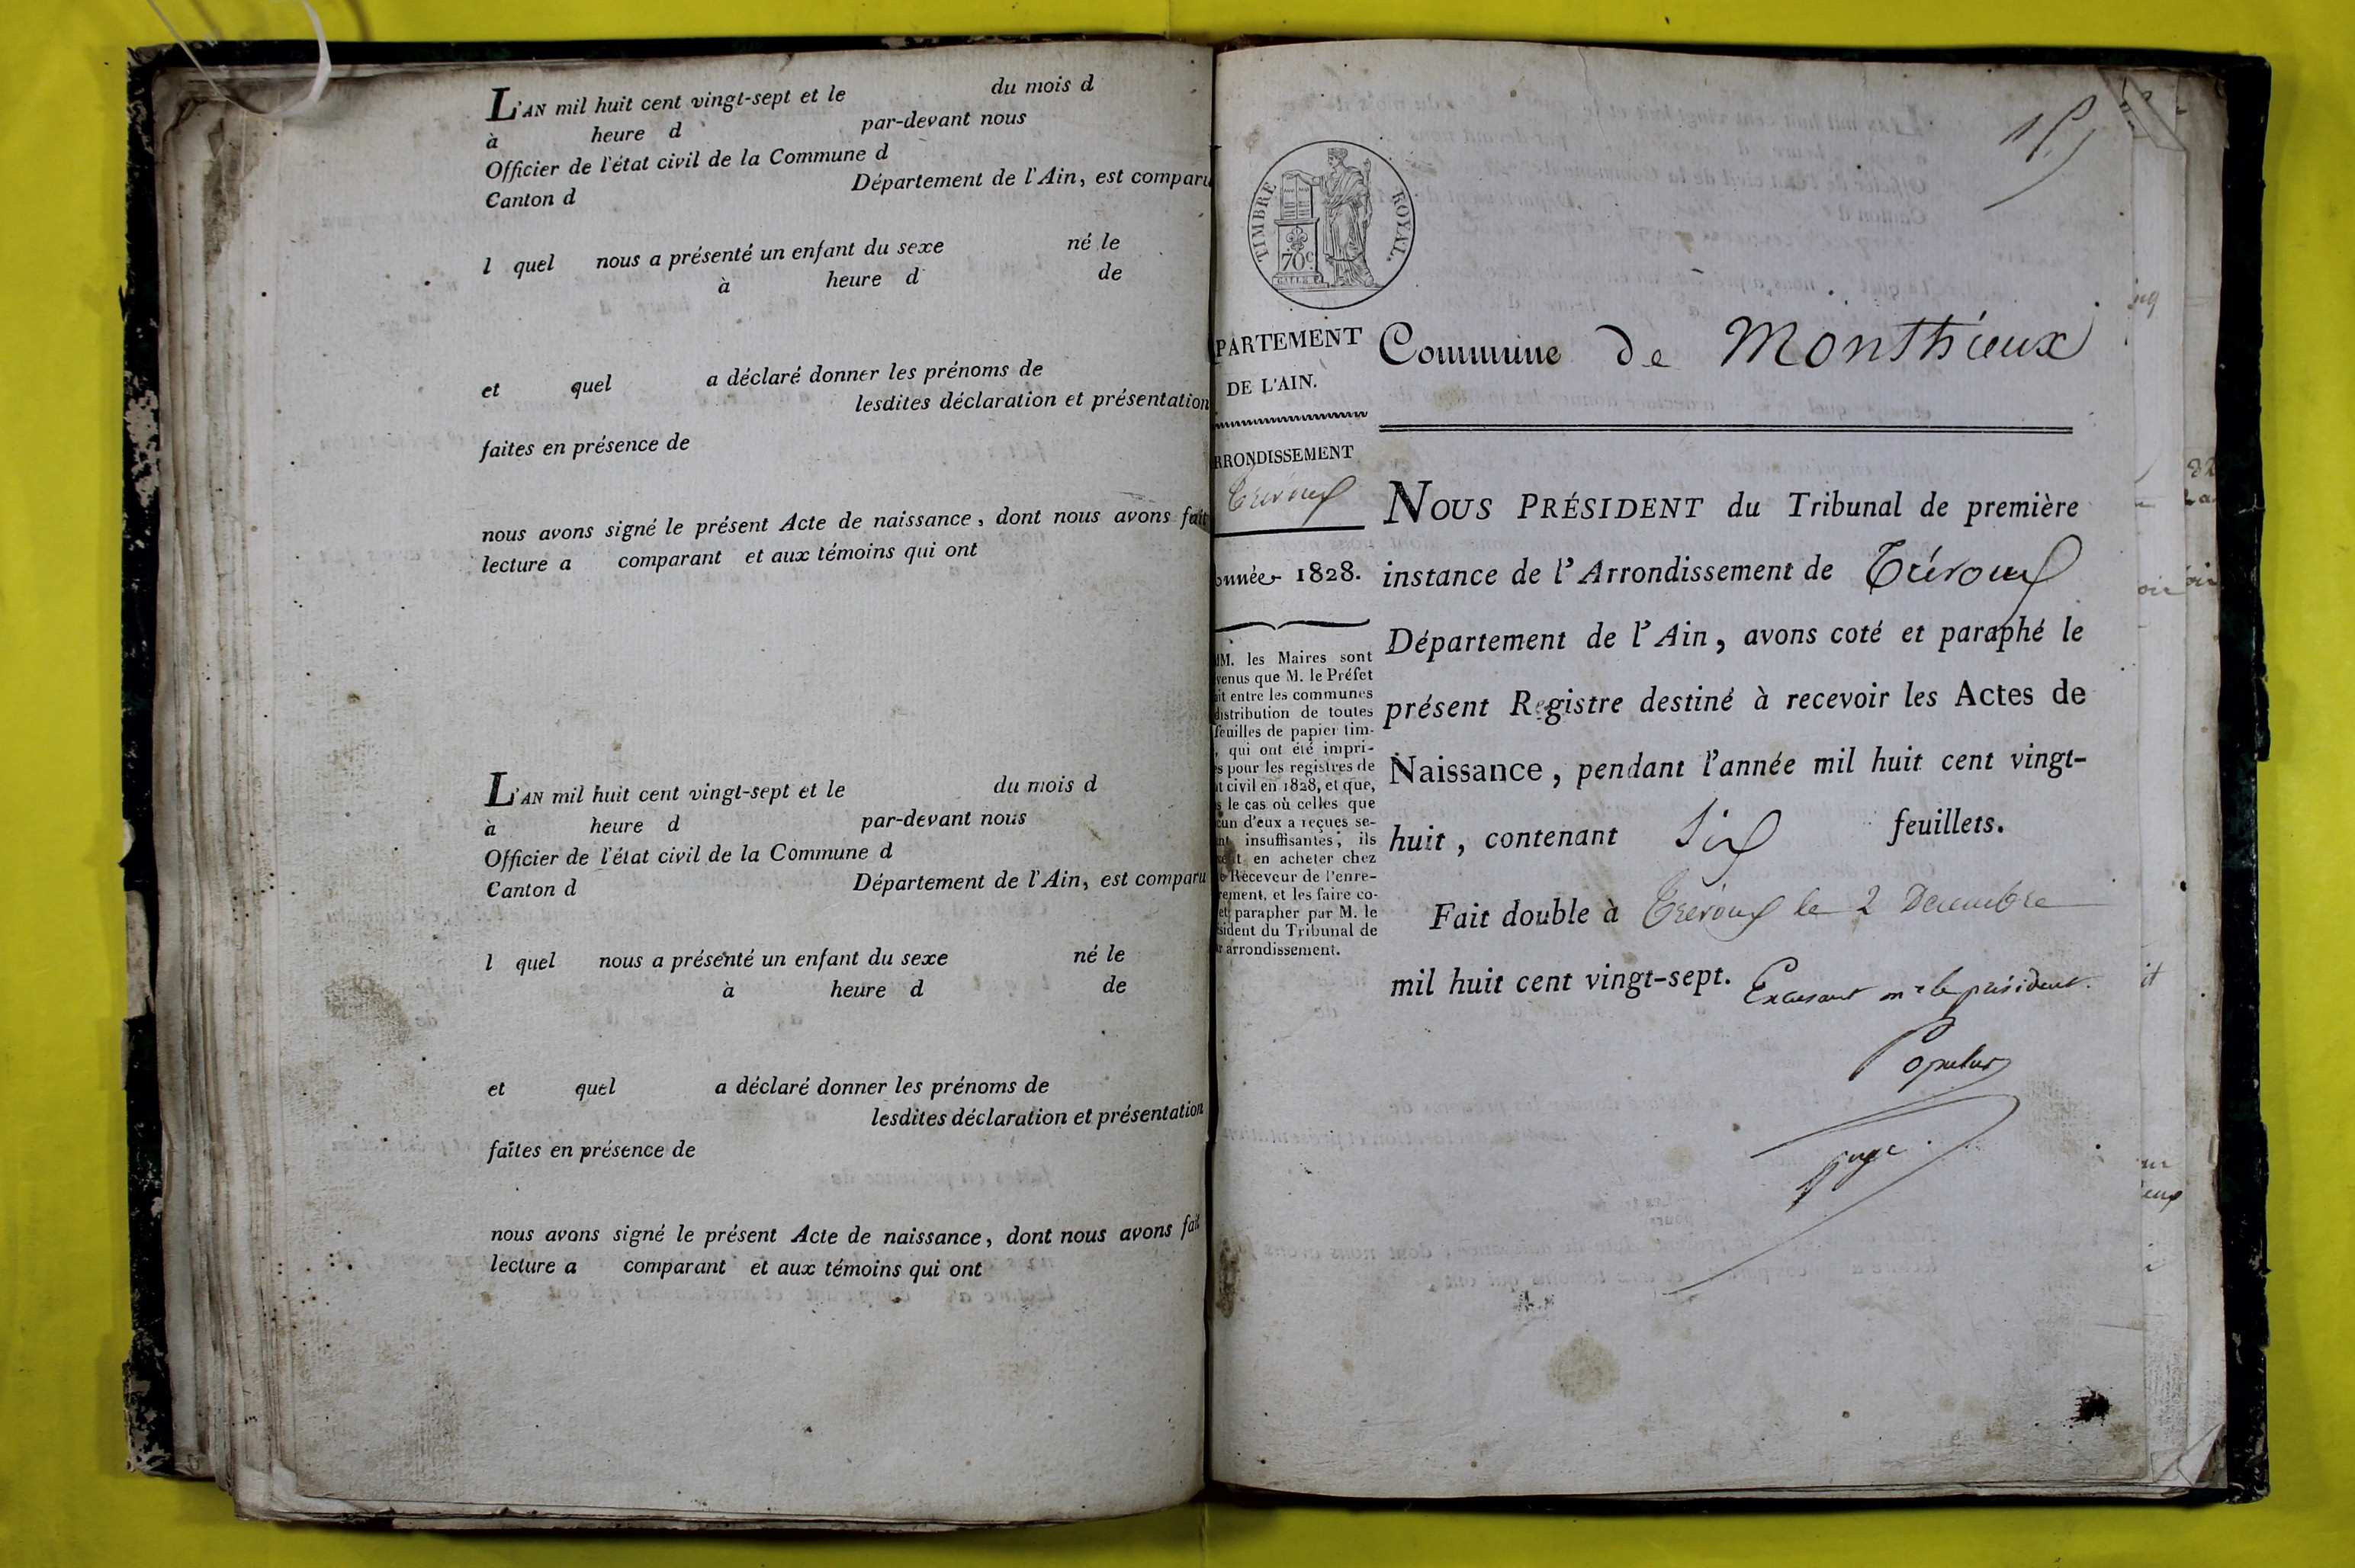 L'AN mil huit cent vingt-sept et le du mois d
à heure d par-devant nous
Officier de l'état civil de la Commune d
Canton d Département de l'Ain, est comparu
l quel nous a présenté un enfant du sexe né le
à heure d de
et quel a déclaré donner les prénoms de
lesdites déclaration et présentation
faites en présence de
nous avons signé le présent Acte de naissance, dont nous avons fait
lecture a comparant et aux témoins qui ont
L'AN mil huit cent vingt-sept et le du mois d
à heure d par-devant nous
Officier de l'état civil de la Commune d
Canton d Département de l'Ain, est comparu
l quel nous a présenté un enfant du sexe né le
à heure d de
et quel a déclaré donner les prénoms de
lesdites déclaration et présentation
faites en présence de
nous avons signé le présent Acte de naissance, dont nous avons fait
lecture a comparant et aux témoins qui ont
TIMBRE ROYAL.
70c
PARTEMENT
DE L'AIN.
RRONDISSEMENT
Trévoux
nnée 1828.
M. les Maires sont
venus que M. le Préfet
it entre les communes
distribution de toutes
feuilles de papier tim-
, qui ont été impri-
s pour les registres de
t civil en 1828, et que,
s le cas où celles que
cun d'eux a reçues se-
nt insuffisantes, ils
en acheter chez
Receveur de l'enre-
rement, et les faire co-
et parapher par M. le
sident du Tribunal de
r arrondissement.
Commune de Monthieux
NOUS PRÉSIDENT du Tribunal de première
instance de l'Arrondissement de Trévoux
Département de l'Ain, avons coté et paraphé le
présent Registre destiné à recevoir les Actes de
Naissance, pendant l'année mil huit cent vingt-
huit, contenant Six feuillets.
Fait double à Trévoux le 2 Decembre
mil huit cent vingt-sept. Excusant mr le président.
Populus
juge.